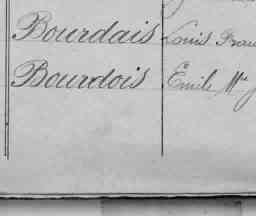 Bourdais Louis Fran
Bourdois Emile Mie